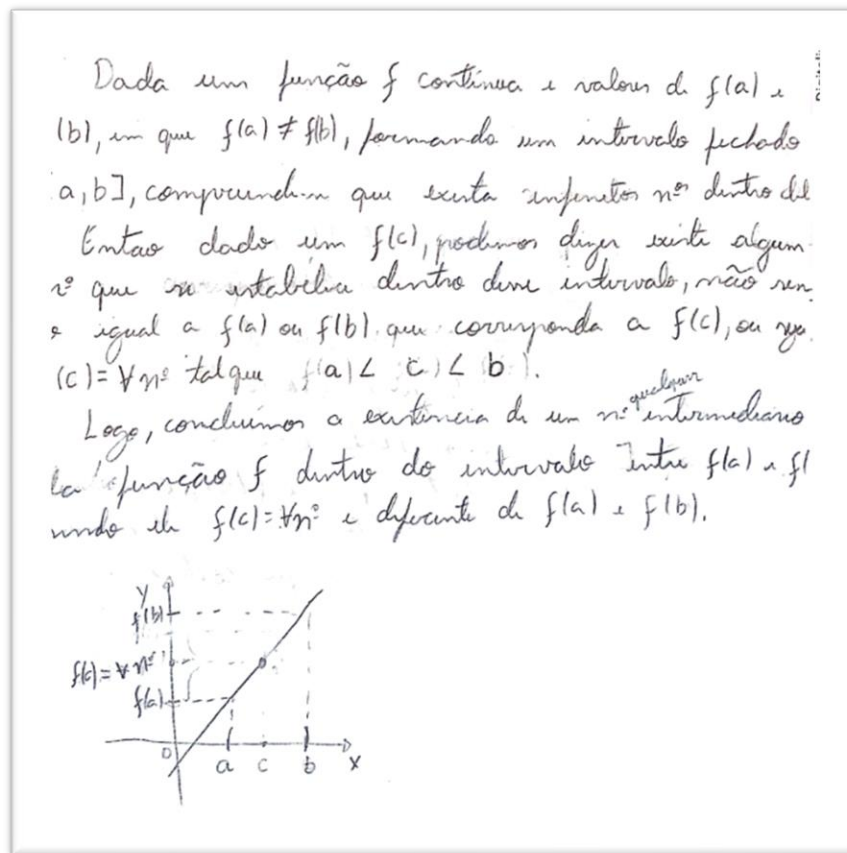 Dada um função f contínua e valores de f(a) e
(b), em que f(a) ≠ f(b), formando um intervalo fechado
a, b], compreende-se que exista infinitos nºs dentro del
Entao dado um f(c), podemos dizer existe algum
nº que se estabeleça dentro desse intervalo, não sen
o igual a f(a) ou f(b) que corresponda a f(c), ou seja
(c) = ∀ nº tal que f(a) < c) < b).
qualquer
Logo, concluimos a existência de um nº intermediário
da função f dentro do intervalo entre f(a) e f(
sendo ele f(c) = ∀nº e diferente de f(a) e f(b).
y
f(b)
f(c) = ∀ nº
f(a)
0 a c b x